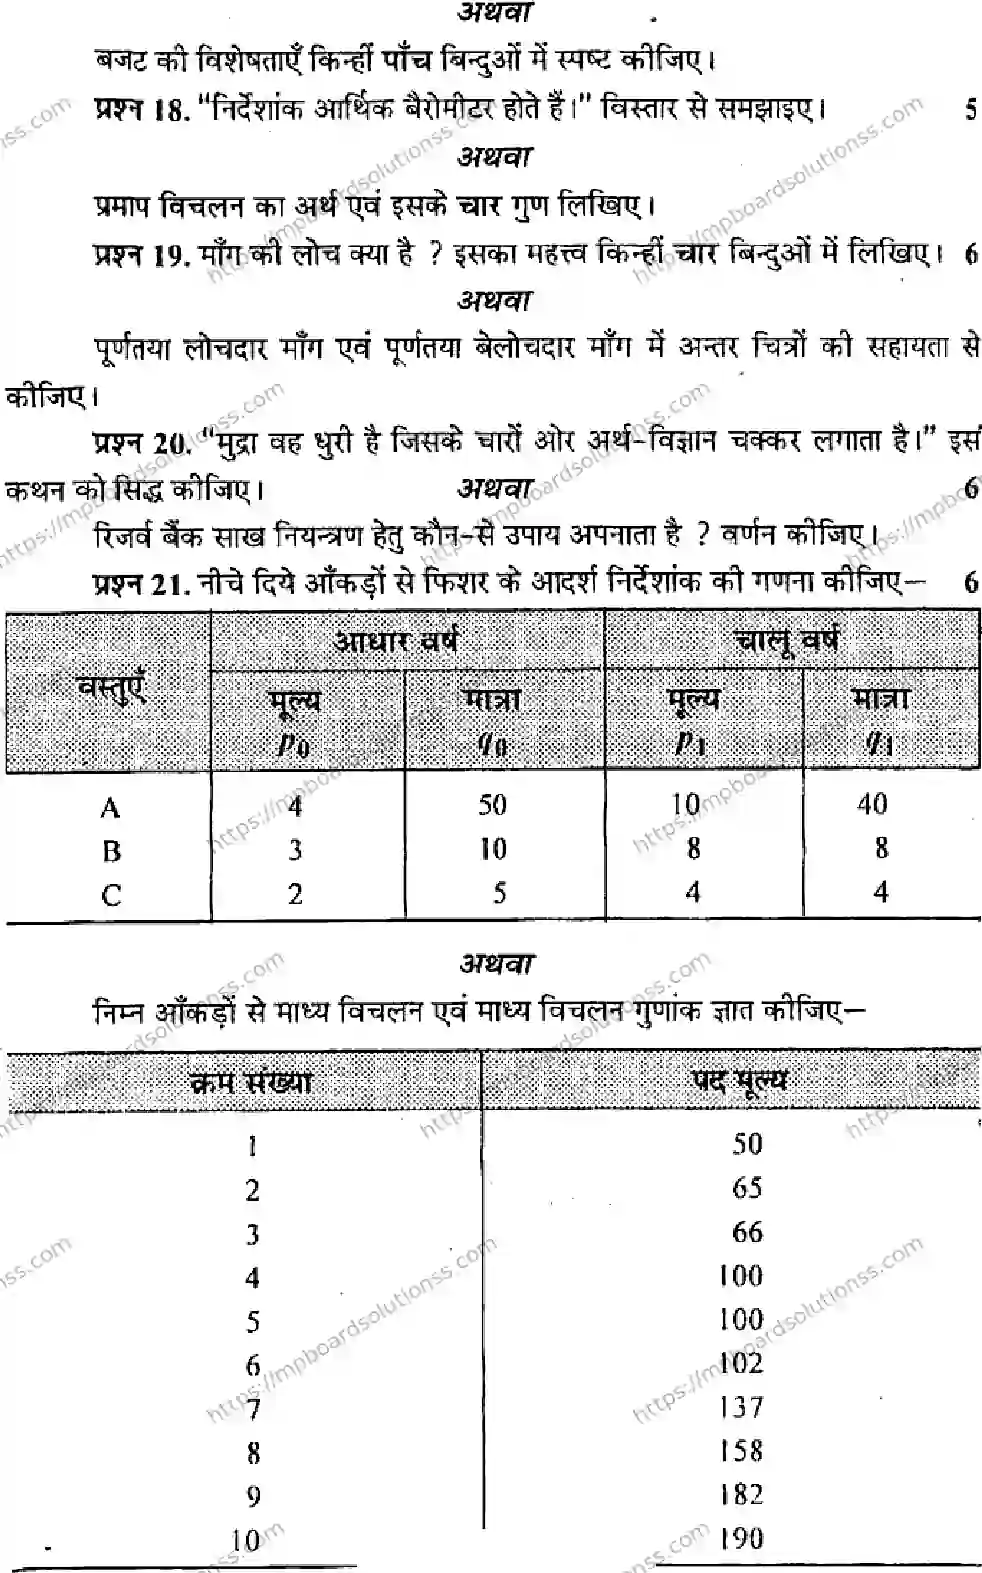 अथवा
बजट की विशेषताएँ किन्हीं पाँच बिन्दुओं में स्पष्ट कीजिए।
प्रश्न 18. “निर्देशांक आर्थिक बैरोमीटर होते हैं।” विस्तार से समझाइए। 5
अथवा
प्रमाप विचलन का अर्थ एवं इसके चार गुण लिखिए।
प्रश्न 19. माँग की लोच क्या है ? इसका महत्त्व किन्हीं चार बिन्दुओं में लिखिए। 6
अथवा
पूर्णतया लोचदार माँग एवं पूर्णतया बेलोचदार माँग में अन्तर चित्रों की सहायता से
कीजिए।
प्रश्न 20. “मुद्रा वह धुरी है जिसके चारों ओर अर्थ-विज्ञान चक्कर लगाता है।” इस
कथन को सिद्ध कीजिए। अथवा 6
रिजर्व बैंक साख नियन्त्रण हेतु कौन-से उपाय अपनाता है ? वर्णन कीजिए।
प्रश्न 21. नीचे दिये आँकड़ों से फिशर के आदर्श निर्देशांक की गणना कीजिए— 6
वस्तुएँ आधार वर्ष चालू वर्ष
मूल्य मात्रा मूल्य मात्रा
p0 q0 p1 q1
A 4 50 10 40
B 3 10 8 8
C 2 5 4 4
अथवा
निम्न आँकड़ों से माध्य विचलन एवं माध्य विचलन गुणांक ज्ञात कीजिए—
क्रम संख्या पद मूल्य
1 50
2 65
3 66
4 100
5 100
6 102
7 137
8 158
9 182
10 190
https://mpboardsolutionss.com